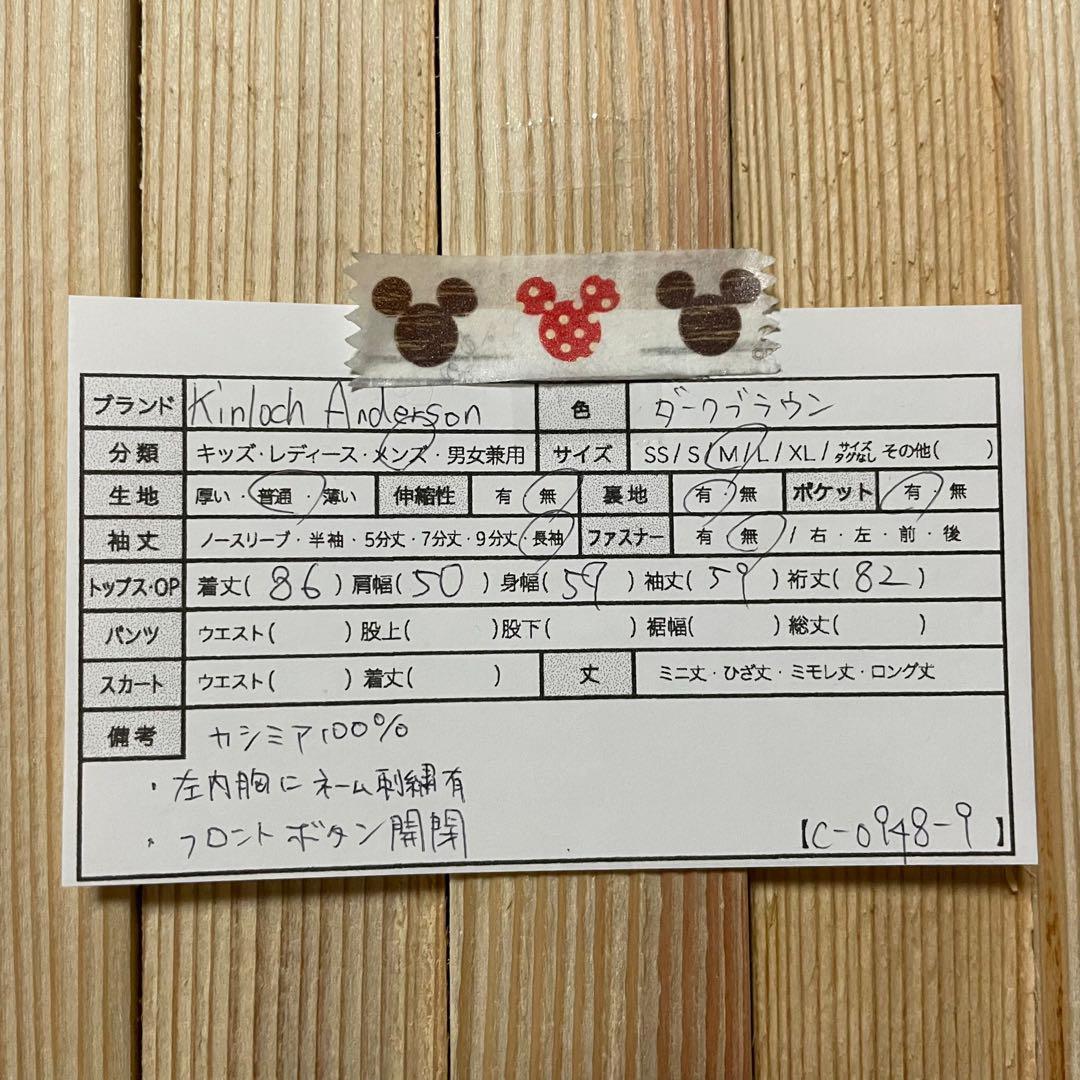 ブランド Kinloch Anderson 色 ダークブラウン
分類 キッズ・レディース・メンズ・男女兼用 サイズ SS/S/M/L/XL/サイズタグなし その他( )
生地 厚い・普通・薄い 伸縮性 有・無 裏地 有・無 ポケット 有・無
袖丈 ノースリーブ・半袖・5分丈・7分丈・9分丈・長袖 ファスナー 有・無 / 右・左・前・後
トップス・OP 着丈(86) 肩幅(50) 身幅(59) 袖丈(59) 裄丈(82)
パンツ ウエスト( ) 股上( ) 股下( ) 裾幅( ) 総丈( )
スカート ウエスト( ) 着丈( ) 丈 ミニ丈・ひざ丈・ミモレ丈・ロング丈
備考 カシミア100%
・左内胸にネーム刺繍有
・フロントボタン開閉 【C-0948-9】